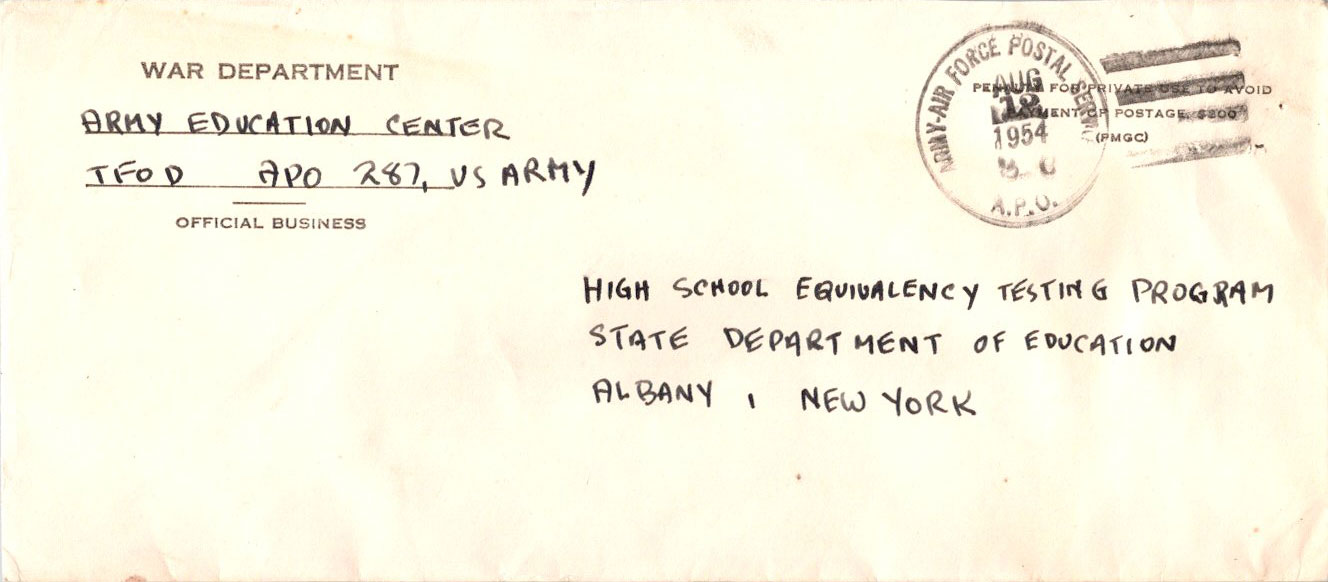 WAR DEPARTMENT
ARMY EDUCATION CENTER
TFOD APO 287, US ARMY
OFFICIAL BUSINESS
ARMY-AIR FORCE POSTAL SERV
AUG
12
1954
A.P.O.
PENALTY FOR PRIVATE USE TO AVOID
PAYMENT OF POSTAGE, $300
(PMGC)
HIGH SCHOOL EQUIVALENCY TESTING PROGRAM
STATE DEPARTMENT OF EDUCATION
ALBANY , NEW YORK